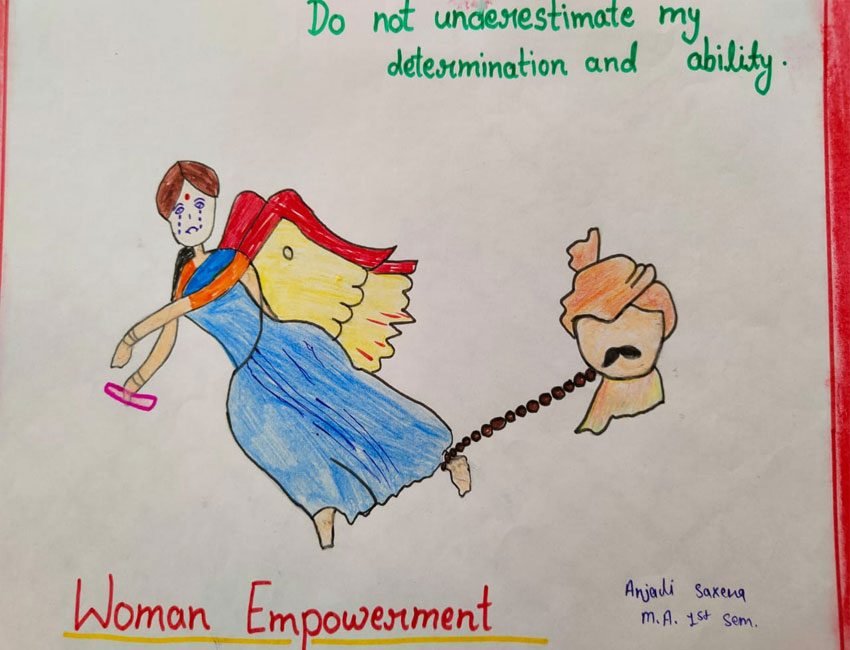 Do not underestimate my
determination and ability.
Woman Empowerment
Anjali Saxena
M.A. 1st Sem.